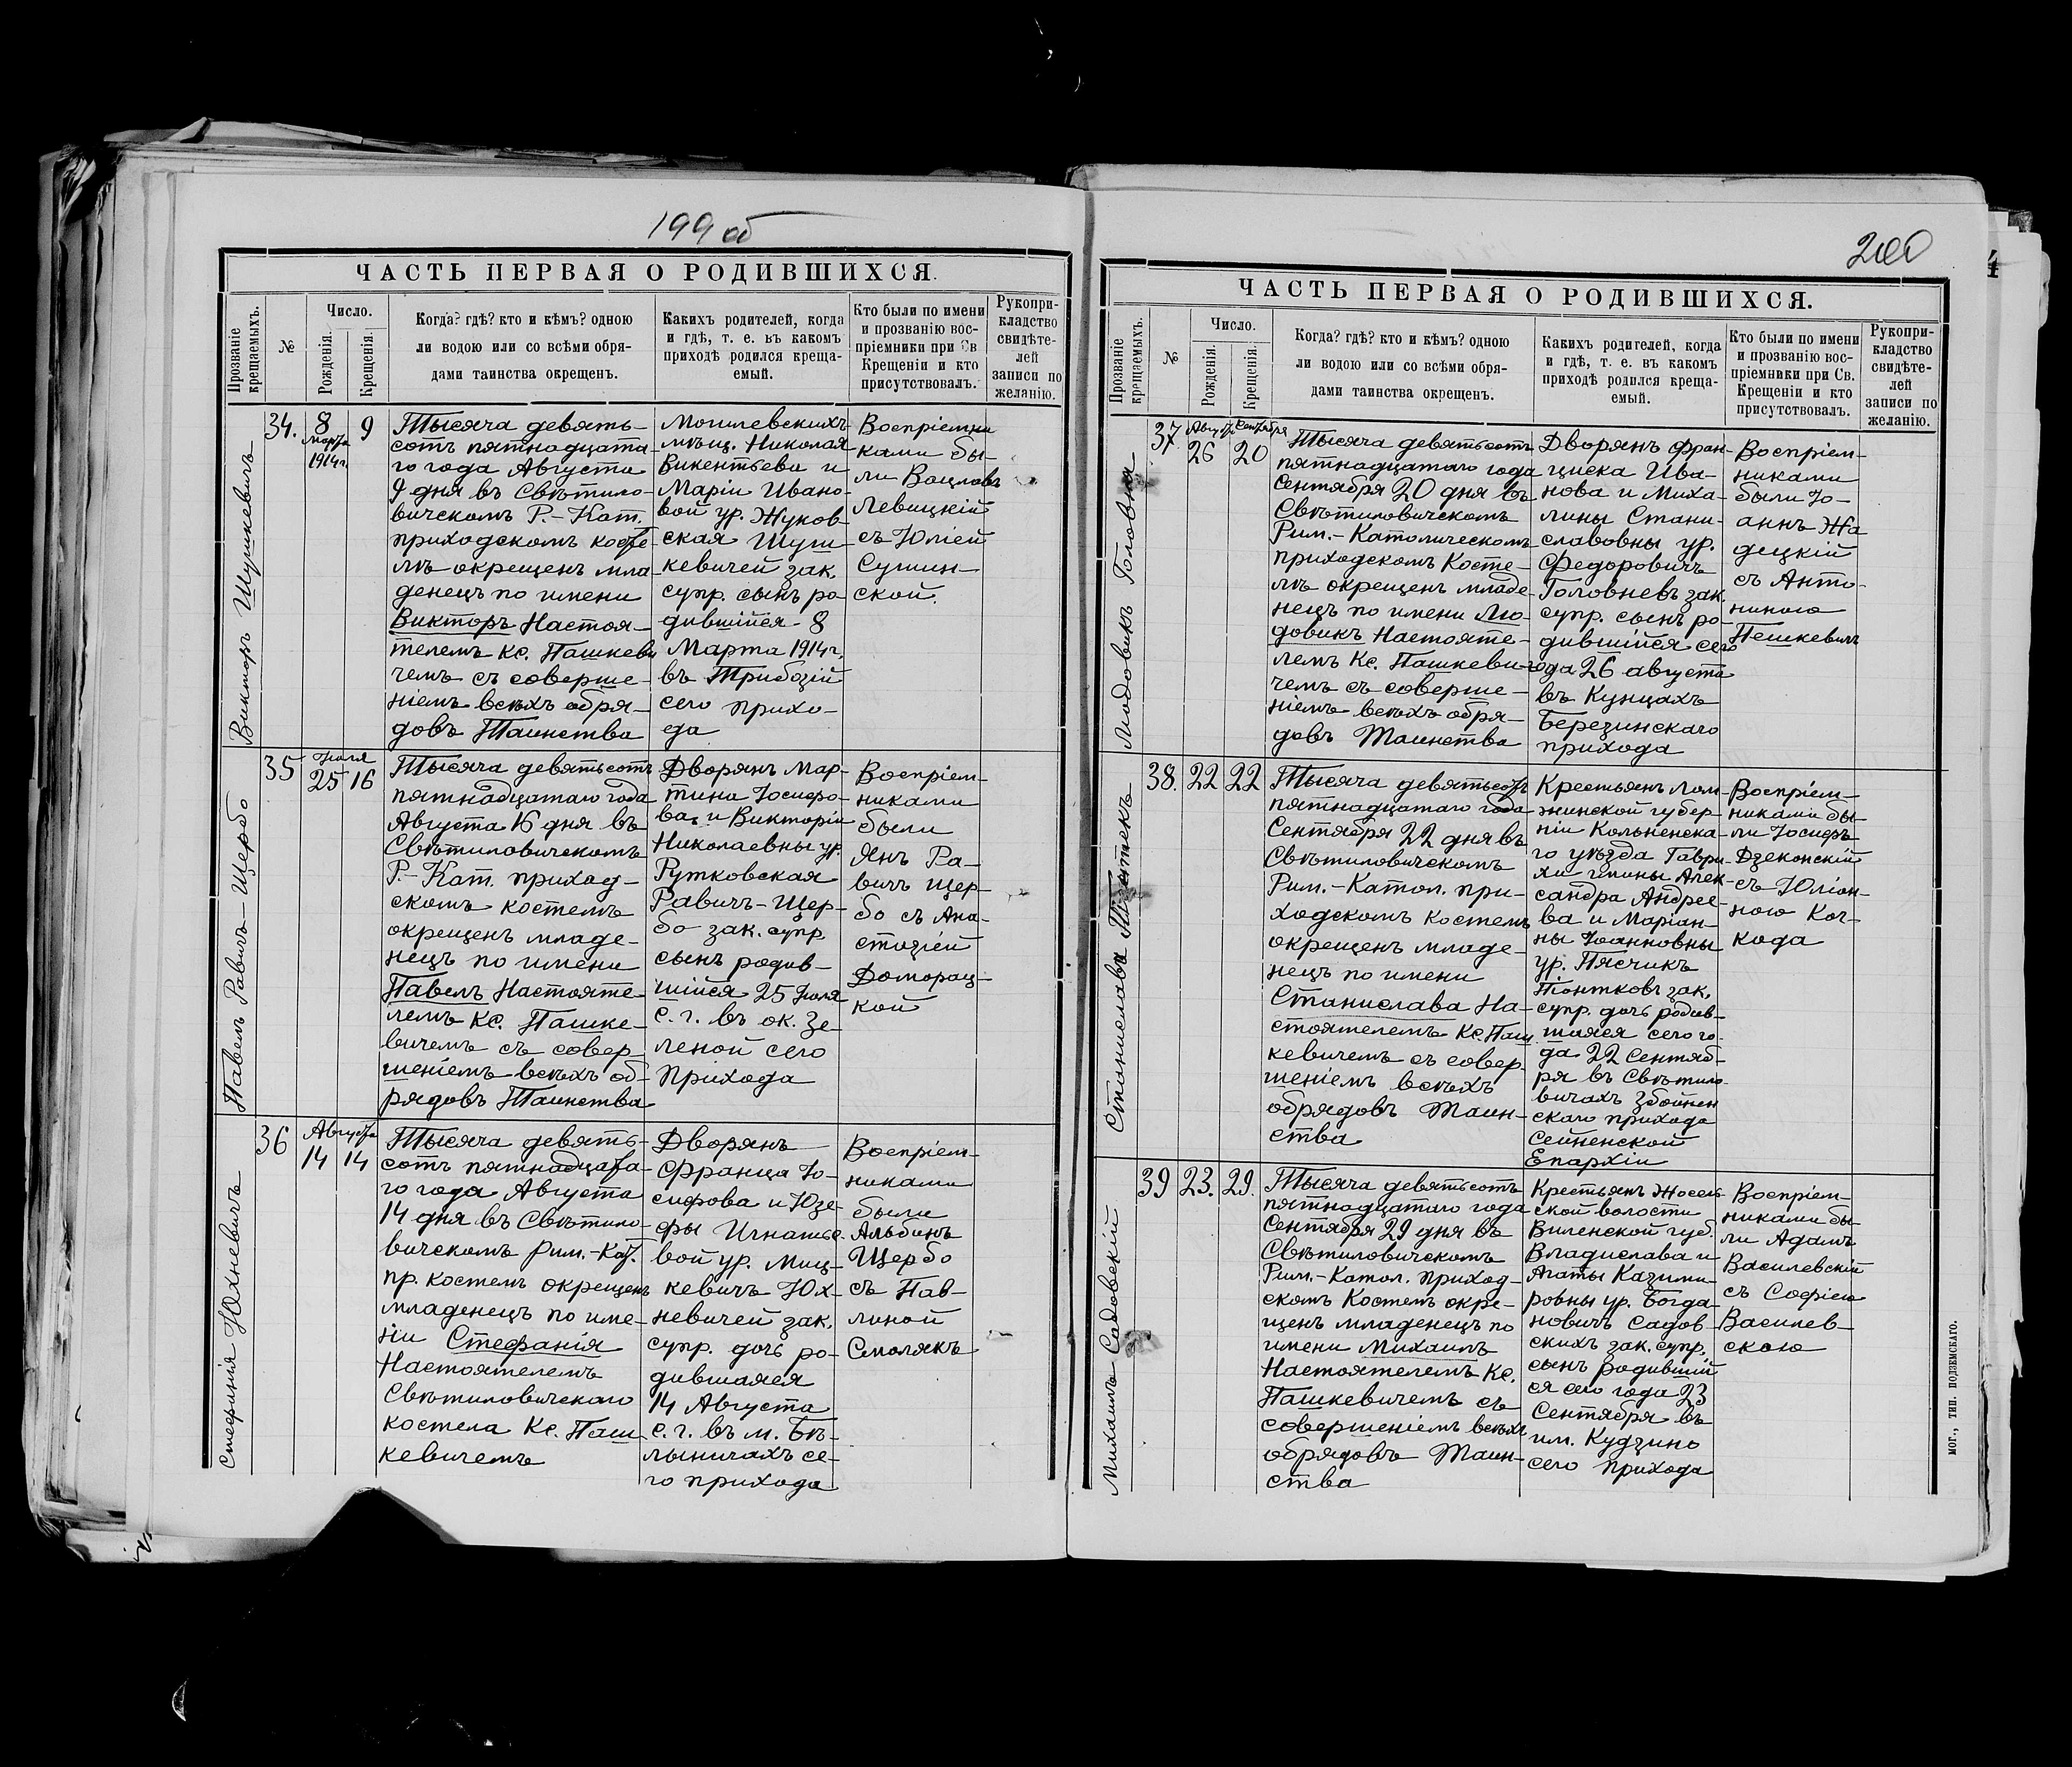 199 об
ЧАСТЬ ПЕРВАЯ О РОДИВШИХСЯ.
Прозваніе крещаемыхъ.
№
Число.
Рожденія.
Крещенія.
Когда? гдѣ? кто и кѣмъ? одною
ли водою или со всѣми обря-
дами таинства окрещенъ.
Какихъ родителей, когда
и гдѣ, т. е. въ какомъ
приходѣ родился креща-
емый.
Кто были по имени
и прозванію вос-
пріемники при Св
Крещеніи и кто
присутствовалъ.
Рукопри-
кладство
свидѣте-
лей
записи по
желанію.
Викторъ Шушкевичъ
34.
8
марта
1914 г.
9
Тысяча девять-
сотъ пятнадцата
го года Августа
9 дня въ Свѣтило-
вичскомъ Р.-Кат.
приходскомъ косте
лѣ окрещенъ мла-
денецъ по имени
Викторъ Настоя-
телемъ Кс. Пашкеви
чемъ съ соверше-
ніемъ всѣхъ обря-
довъ Таинства
Могилевскихъ
мѣщ. Николая
Викентьева и
Маріи Ивано-
вой ур. Жуков-
ская Шуш
кевичей зак.
супр. сынъ ро
дившійся 8
Марта 1914 г.
въ Трибозій
сего прихо-
да
Воспріемни
ками бы-
ли Вацлавъ
Левицкій
съ Юліей
Сушин-
ской.
Павелъ Равичъ-Щербо
35
Іюля
25
16
Тысяча девятьсотъ
пятнадцатаго года
Августа 16 дня въ
Свѣтиловичскомъ
Р.-Кат. приход-
скомъ костелѣ
окрещенъ младе-
нецъ по имени
Павелъ Настояте-
лемъ Кс. Пашке-
вичемъ съ совер-
шеніемъ всѣхъ об-
рядовъ Таинства
Дворянъ Мар-
тина Іосифо-
ва и Викторіи
Николаевны ур.
Рутковская
Равичъ-Щер-
бо зак. супр.
сынъ родив-
шійся 25 Іюля
с. г. въ ок. Зе-
леной сего
прихода
Воспріем-
никами
были
Янъ Ра-
вичъ Щер-
бо съ Ана-
стазіей
Доморац-
кой
Стефанія Юхневичъ
36
Августа
14
14
Тысяча девять-
сотъ пятнадцата-
го года Августа
14 дня въ Свѣтило-
вичскомъ Рим.-Кат.
пр. костелѣ окрещенъ
младенецъ по име-
ни Стефанія
Настоятелемъ
Свѣтиловичскаго
костела Кс. Паш
кевичемъ
Дворянъ
Франца Іо-
сифова и Юзе-
фы Игнатье-
вой ур. Миц-
кевичъ Юх-
невичей зак.
супр. дочь ро-
дившаяся
14 Августа
с. г. въ м. Бѣ-
лыничахъ се-
го прихода
Воспріем-
никами
были
Альбинъ
Щербо
съ Пав-
линой
Смолякъ
200
ЧАСТЬ ПЕРВАЯ О РОДИВШИХСЯ.
Прозваніе крещаемыхъ.
№
Число.
Рожденія.
Крещенія.
Когда? гдѣ? кто и кѣмъ? одною
ли водою или со всѣми обря-
дами таинства окрещенъ.
Какихъ родителей, когда
и гдѣ, т. е. въ какомъ
приходѣ родился креща-
емый.
Кто были по имени
и прозванію вос-
пріемники при Св.
Крещеніи и кто
присутствовалъ.
Рукопри-
кладство
свидѣте-
лей
записи по
желанію.
Людовикъ Головня
37.
Августа
26
Сентября
20
Тысяча девятьсотъ
пятнадцатаго года
Сентября 20 дня въ
Свѣтиловичскомъ
Рим.-Католическомъ
приходскомъ Косте-
лѣ окрещенъ младе-
нецъ по имени Лю-
довикъ Настояте-
лемъ Кс. Пашкеви-
чемъ съ соверше-
ніемъ всѣхъ обря-
довъ Таинства
Дворянъ Фран-
циска Ива-
нова и Миха-
лины Стани-
славовны ур.
Федоровичъ
Головневъ зак.
супр. сынъ ро-
дившійся сего
года 26 августа
въ Кунцахъ
Березинскаго
прихода
Воспріем-
никами
были Іо-
аннъ Жа
децкій
съ Анто-
ниною
Пешкевичъ
Станислава Піонтекъ
38.
22
22
Тысяча девятьсотъ
пятнадцатаго года
Сентября 22 дня въ
Свѣтиловичскомъ
Рим.-Катол. при-
ходскомъ костелѣ
окрещенъ младе-
нецъ по имени
Станислава На-
стоятелемъ Кс. Паш
кевичемъ съ совер
шеніемъ всѣхъ
обрядовъ Таин-
ства
Крестьянъ Лом-
жинской губер-
ніи Кольненска-
го уѣзда Гаври-
хи гмины Алек-
сандра Андрее-
ва и Маріан-
ны Іоанновны
ур. Пясчикъ
Піонтковъ зак.
супр. дочь родив-
шаяся сего го-
да 22 Сентяб-
ря въ Свѣтило-
вичахъ Збойнен
скаго прихода
Сейненской
Епархіи
Воспріем-
никами бы-
ли Іосифъ
Дзеконскій
съ Юліан-
ною Коч-
кода
Михаилъ Садовскій
39
23.
29.
Тысяча девятьсотъ
пятнадцатаго года
Сентября 29 дня въ
Свѣтиловичскомъ
Рим.-Катол. приход-
скомъ Костелѣ окре-
щенъ младенецъ по
имени Михаилъ
Настоятелемъ Кс.
Пашкевичемъ съ
совершеніемъ всѣхъ
обрядовъ Таин-
ства
Крестьянъ Жосель
ской волости
Виленской губ.
Владислава и
Агаты Казими-
ровны ур. Богда-
новичъ Садов-
скихъ зак. супр.
сынъ родивший
ся сего года 23
Сентября въ
им. Кудзино
сего прихода
Воспріем-
никами бы-
ли Адамъ
Василевскій
съ Софіею
Василев-
скою
МОГ., ТИП. ПОДЗЕМСКАГО.